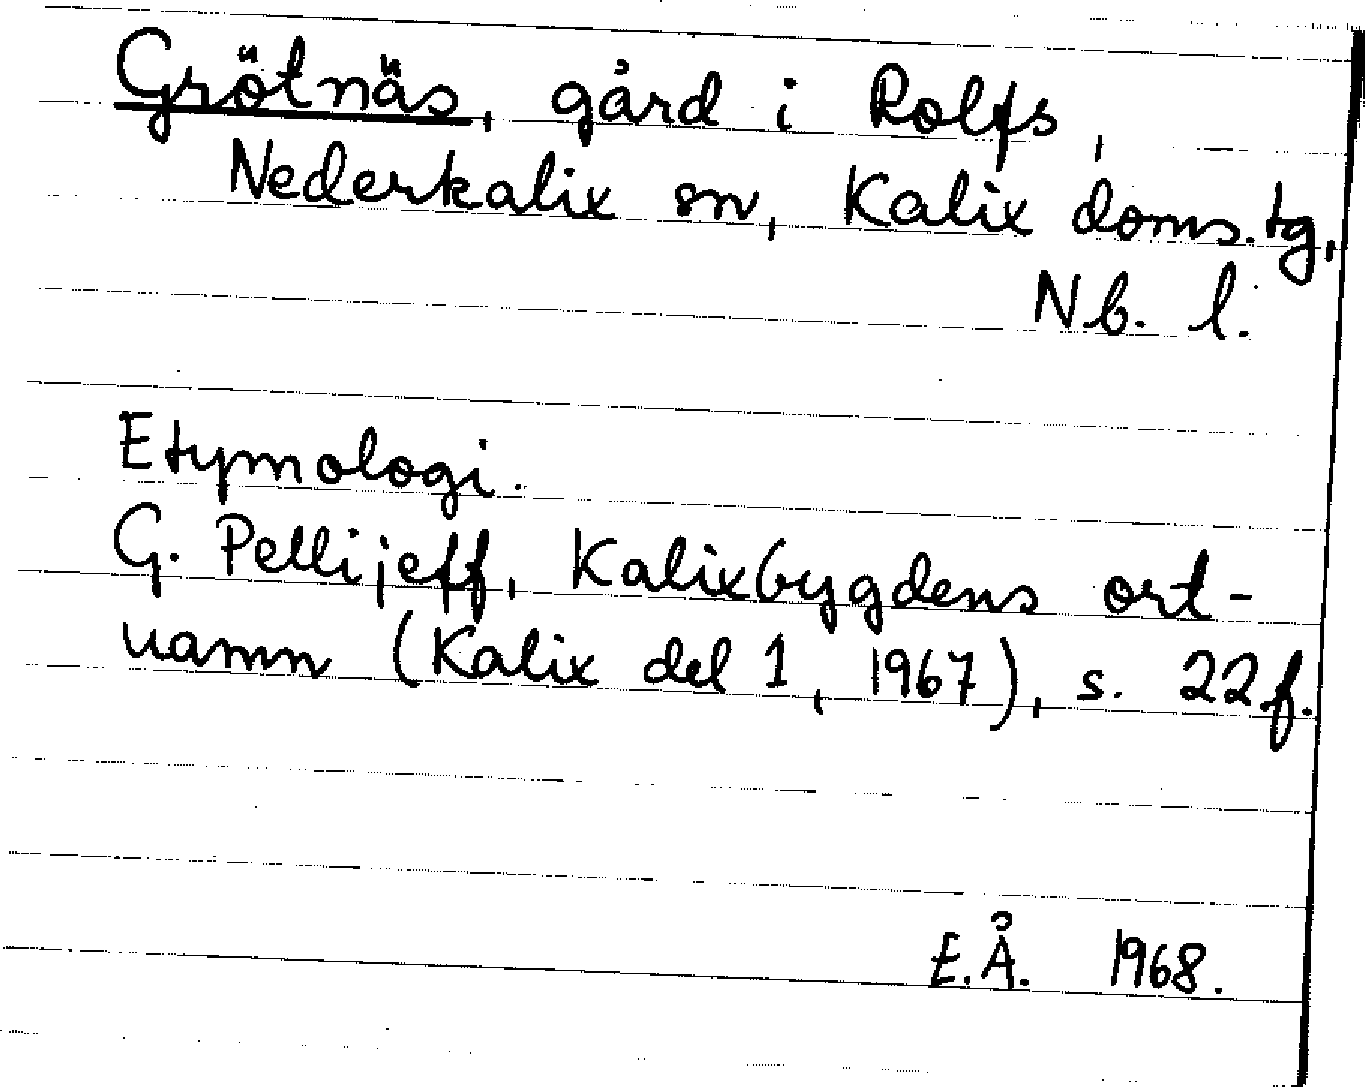 Grötnäs, gård i Rolfs,
Nederkalix sn, Kalix doms.tg,
Nb. l.
Etymologi.
G. Pellijeff, Kalixbygdens ort-
namn (Kalix del 1, 1967), s. 22f.
E.Å. 1968.